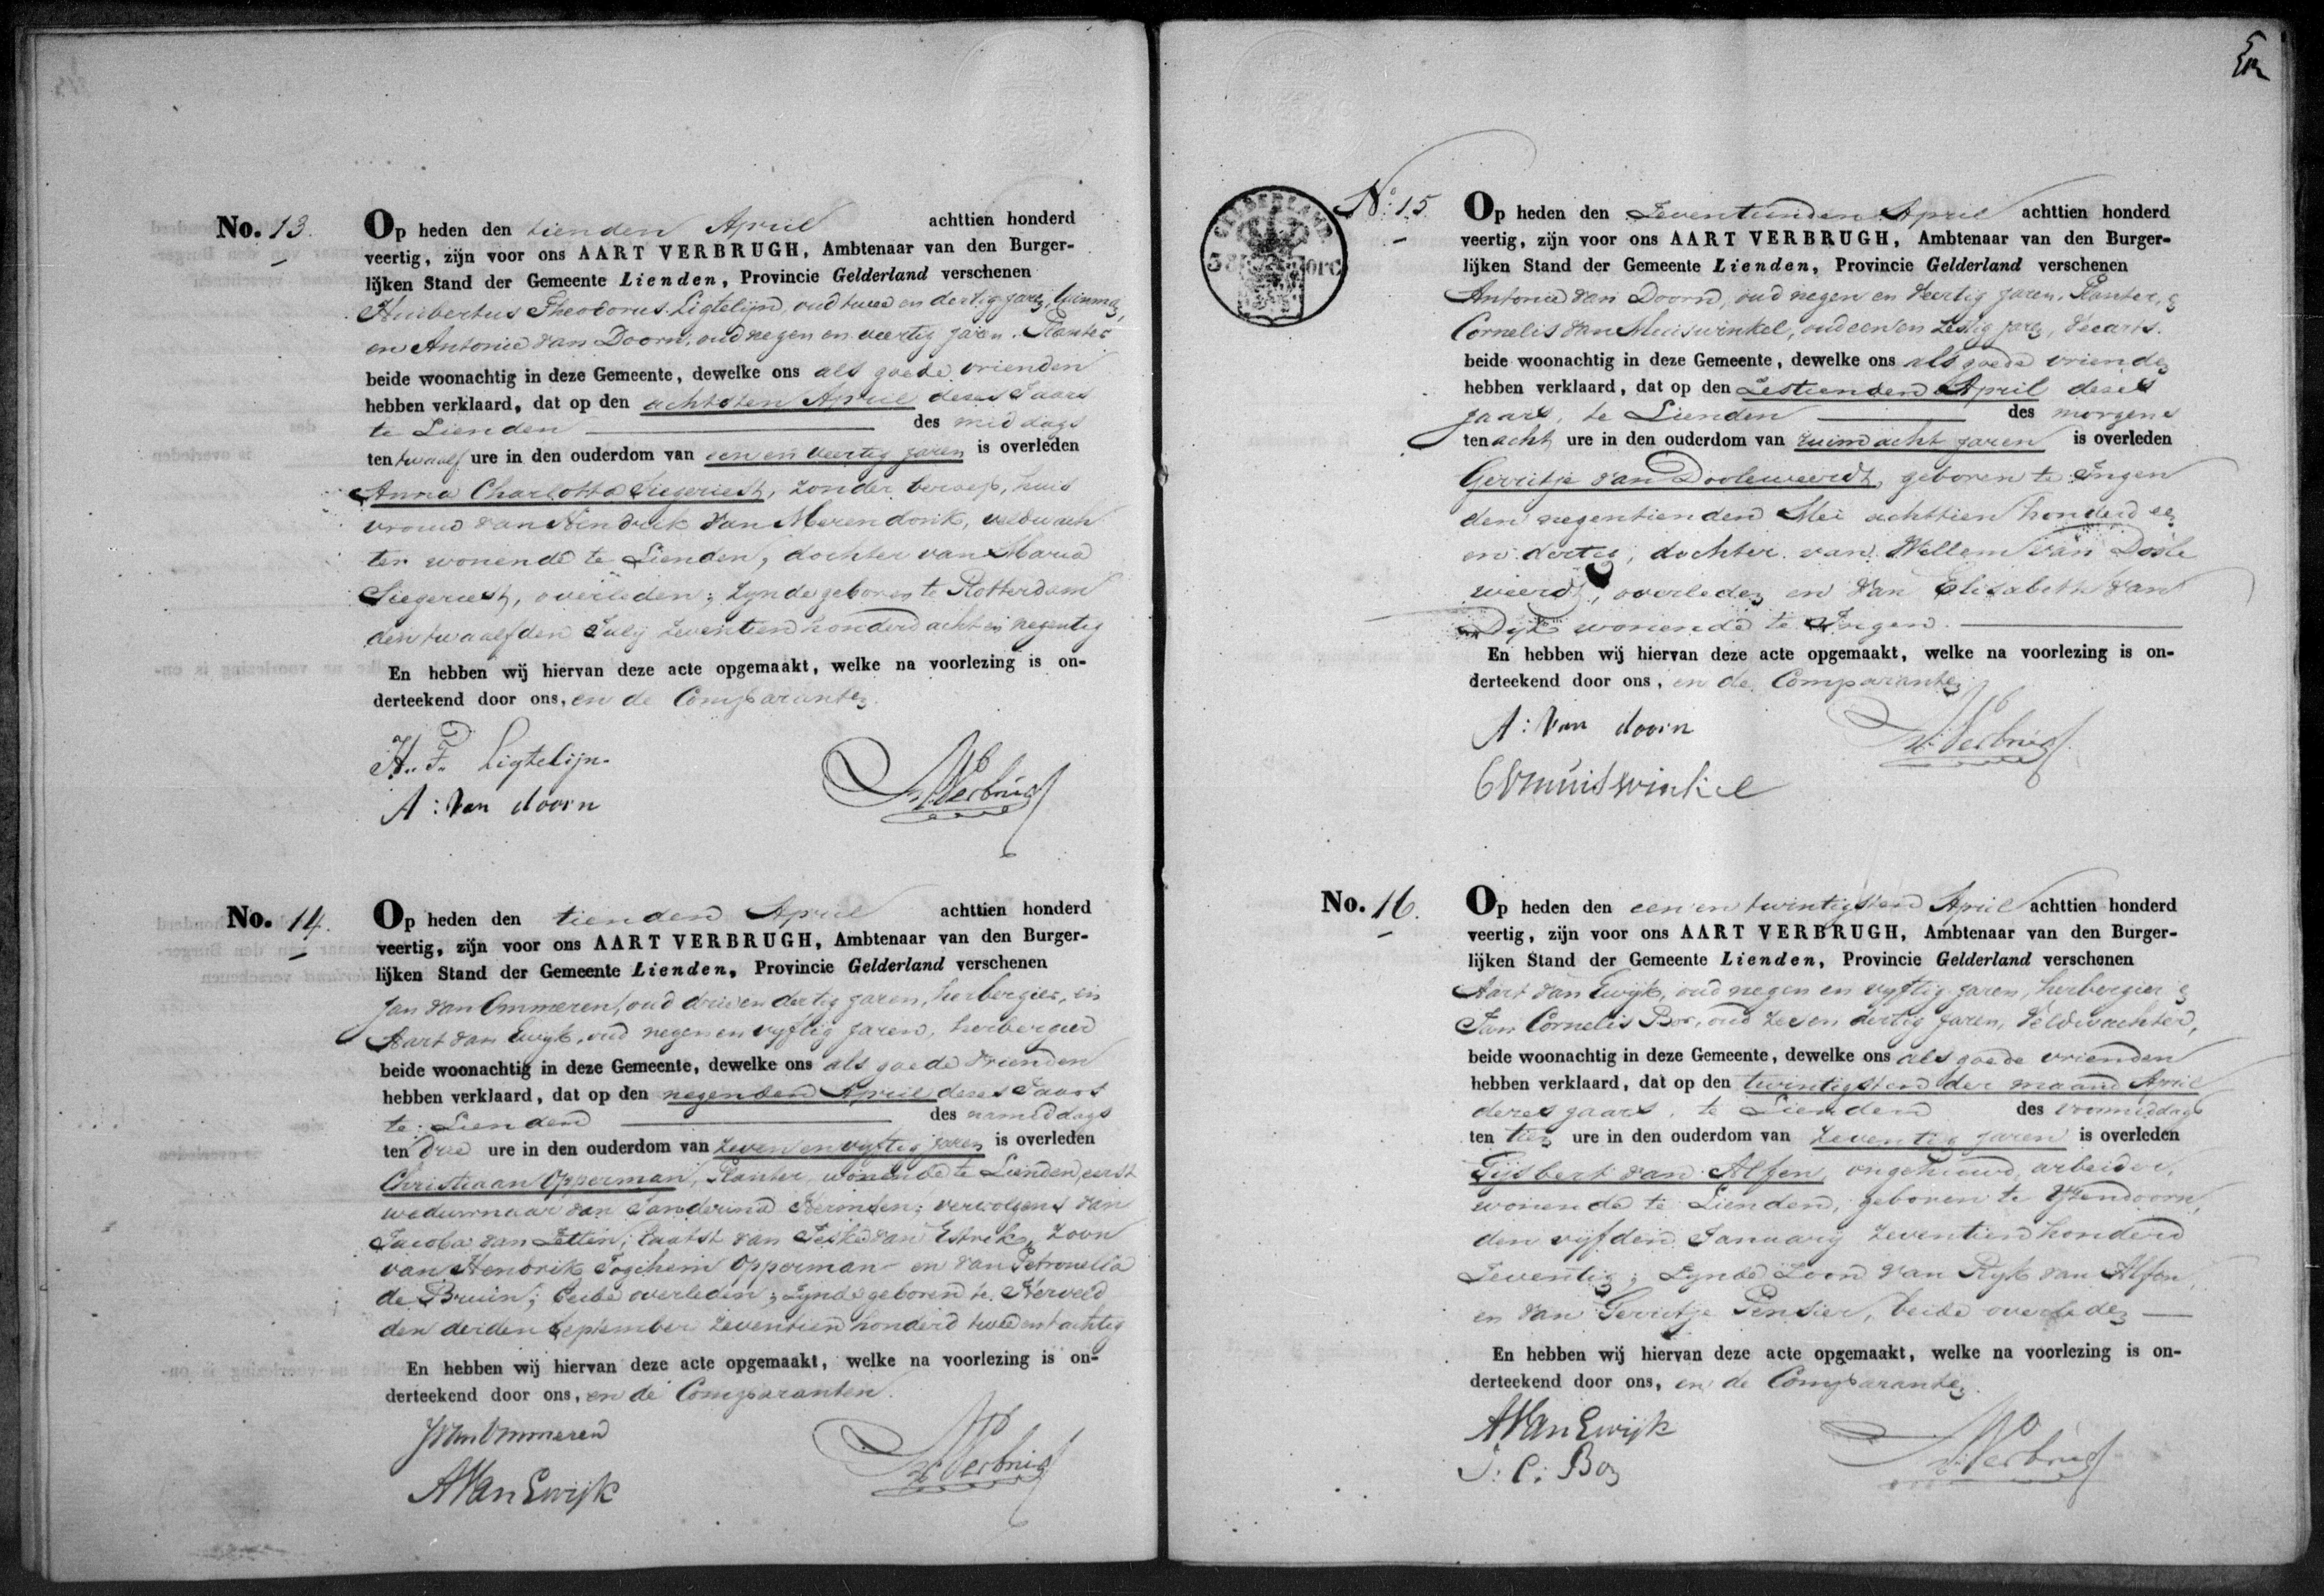 No. 13.
Op heden den tienden April achttien honderd
veertig, zijn voor ons AART VERBRUGH, Ambtenaar van den Burger-
lijken Stand der Gemeente Lienden, Provincie Gelderland verschenen
Huibertus Theodorus Ligtelijn, oud twee en dertig jaren,
en Antonie van Doorn, oud negen en veertig jaren. Planter
beide woonachtig in deze Gemeente, dewelke ons als goede vrienden
hebben verklaard, dat op den achtsten April dezes Jaars
te Lienden des middags
ten twaalf ure in den ouderdom van een en veertig jaren is overleden
Anna Charlotta Siegeriest, zonder beroep, huis
vrouw van Hendrik van Merendonk, veldwach
ter wonende te Lienden, dochter van Maria
Siegeriest, overleden; zynde geboren te Rotterdam
den twaalfden July zeventien honderd acht en negentig
En hebben wij hiervan deze acte opgemaakt, welke na voorlezing is on-
derteekend door ons, en de Comparanten.
H. F. Ligtelijn.
A: van doorn
AVerbrugh
No. 14.
Op heden den tienden April achttien honderd
veertig, zijn voor ons AART VERBRUGH, Ambtenaar van den Burger-
lijken Stand der Gemeente Lienden, Provincie Gelderland verschenen
Jan van Ommeren, oud drie en dertig jaren, herbergier, en
Aart van Ewyk, oud negen en vyftig jaren, herbergier
beide woonachtig in deze Gemeente, dewelke ons als goede vrienden
hebben verklaard, dat op den negenden April dezes Jaars
te Lienden des namiddags
ten drie ure in den ouderdom van zeven en vyftig jaren is overleden
Christiaan Opperman, Planter, wonende te Lienden, eerst
weduwnaar van Sanderina Hermsen; vervolgens van
Jacoba van Zetten; laatst van van Estrik, Zoon
van Hendrik Jogchem Opperman en van Petronella
de Bruin; beide overleden; zynde geboren te Herveld
den derden September zeventien honderd twee en tachtig
En hebben wij hiervan deze acte opgemaakt, welke na voorlezing is on-
derteekend door ons, en de Comparanten.
JVan Ommeren
AVan Ewijk
AVerbrugh
No. 15
Op heden den Zeventienden April achttien honderd
veertig, zijn voor ons AART VERBRUGH, Ambtenaar van den Burger-
lijken Stand der Gemeente Lienden, Provincie Gelderland verschenen
Antonie van Doorn, oud negen en veertig jaren, Planter, en
Cornelis van Muiswinkel, oud een en zestig jaren, Veearts.
beide woonachtig in deze Gemeente, dewelke ons als goede vrienden
hebben verklaard, dat op den Zestienden April dezes
jaars, te Lienden des morgens
ten acht ure in den ouderdom van ruim acht jaren is overleden
Gerritje van Dooleweerdt, geboren te Ingen
den negentienden Mei achttien honderd een
en dertig, dochter van Willem van Doole
weerdt, overleden en van Elisabeth van
Dyk wonende te Ingen.
En hebben wij hiervan deze acte opgemaakt, welke na voorlezing is on-
derteekend door ons, en de Comparanten
A: van doorn
CVmuiswinkel
AVerbrugh
No. 16.
Op heden den een en twintigsten April achttien honderd
veertig, zijn voor ons AART VERBRUGH, Ambtenaar van den Burger-
lijken Stand der Gemeente Lienden, Provincie Gelderland verschenen
Aart van Ewijk, oud negen en vyftig jaren, herbergier en
Jan Cornelis Bos, oud zes en dertig jaren, Veldwachter,
beide woonachtig in deze Gemeente, dewelke ons als goede vrienden
hebben verklaard, dat op den twintigsten der maand April
dezes jaars, te Lienden des voormiddags
ten tien ure in den ouderdom van zeventig jaren is overleden
Gijsbert van Alfen, ongehuwd, arbeider,
wonende te Lienden, geboren te Yzendoorn,
den vijfden January zeventien honderd
Zeventig; zynde Zoon van Ryk van Alfen,
en van Gerritje Pensier, beide overleden
En hebben wij hiervan deze acte opgemaakt, welke na voorlezing is on-
derteekend door ons, en de Comparanten.
AVan Ewijk
J: C: Bos
AVerbrugh
GELDERLAND